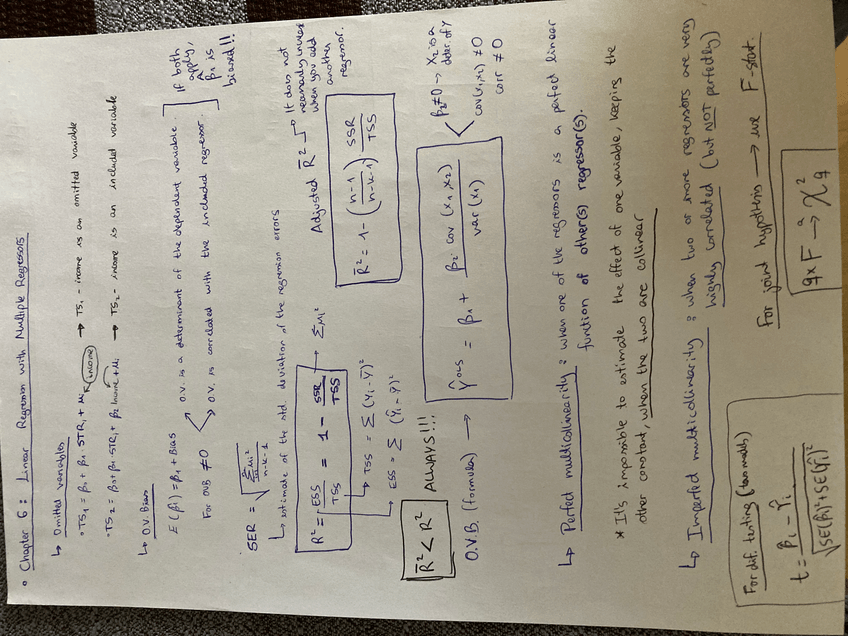 • Chapter 6: Linear Regression with Multiple Regressors
↳ Omitted variables
• TS₁ = β₀ + β₁ · STR₁ + Mᵢ → TS₁ - income is an omitted variable
income
• TS₂ = β₀ + β₁ · STR₁ + β₂ Income + Mᵢ → TS₂ - income is an included variable
↳ O.V. Bias
E(β̂1) = β₁ + Bias
For OVB ≠ 0
O.V. is a determinant of the dependent variable.
O.V. is correlated with the included regressor.
If both apply, β̂₁ is biased!!
SER = √(Σ Mᵢ² / n-k-1)
↳ estimate of the std. deviation of the regression errors
R² = ESS/TSS = 1 - SSR/TSS
→ Σ Mᵢ²
→ TSS = Σ (Yᵢ - Ȳ)²
→ ESS = Σ (Ŷᵢ - Ȳ)²
Adjusted R̄² → It does not
necessarily increase
when you add
another
regressor.
R̄² = 1 - (n-1 / n-k-1) SSR/TSS
R̄² < R² ALWAYS!!!
O.V.B. (formula) → Ŷᴼᴸˢ = β₁ + β₂ cov (x₁, x₂) / var (x₁)
β₂ ≠ 0 → X₂ is a
deter. of Y
cov(x₁,x₂) ≠ 0
corr ≠ 0
↳ Perfect multicollinearity: when one of the regressors is a perfect linear
function of other(s) regressor(s).
* It's impossible to estimate the effect of one variable, keeping the
other constant, when the two are collinear
↳ Imperfect multicollinearity: when two or more regressors are very
highly correlated (but NOT perfectly)
For dif. testing (two models)
t = βᵢ - Ŷᵢ / √(SE(β̂ᵢ)² + SE(Ŷᵢ)²)
For joint hypothesis → use F-stat.
q x F →ᵃ χ²q